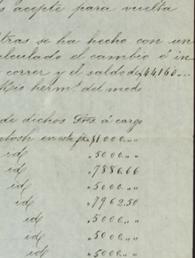 acepte para vuelta
se ha hecho con un
calculado el cambio é in
correr y el saldo de 44160
herm.º del modo
de dichos á cargo
$1000.,,
id ,5000.,,
id ,7886.66
id ,5000.,,
id ,7962.50
id ,5000.,,
id ,5000.,,
id ,5000.,,